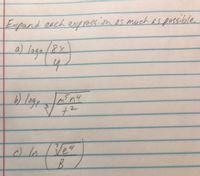 Expand each expression as much as possible.
a) log₂ (8x/y)
b) log₄ ∛(m⁵n⁴/t²)
c) ln (∛z⁴/8)